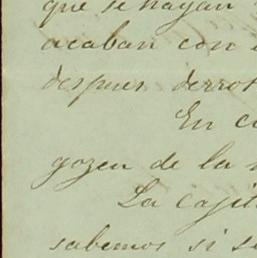 que se hayan
acaban con
despues derrot
En c
gozen de la
La capit
sabemos si se